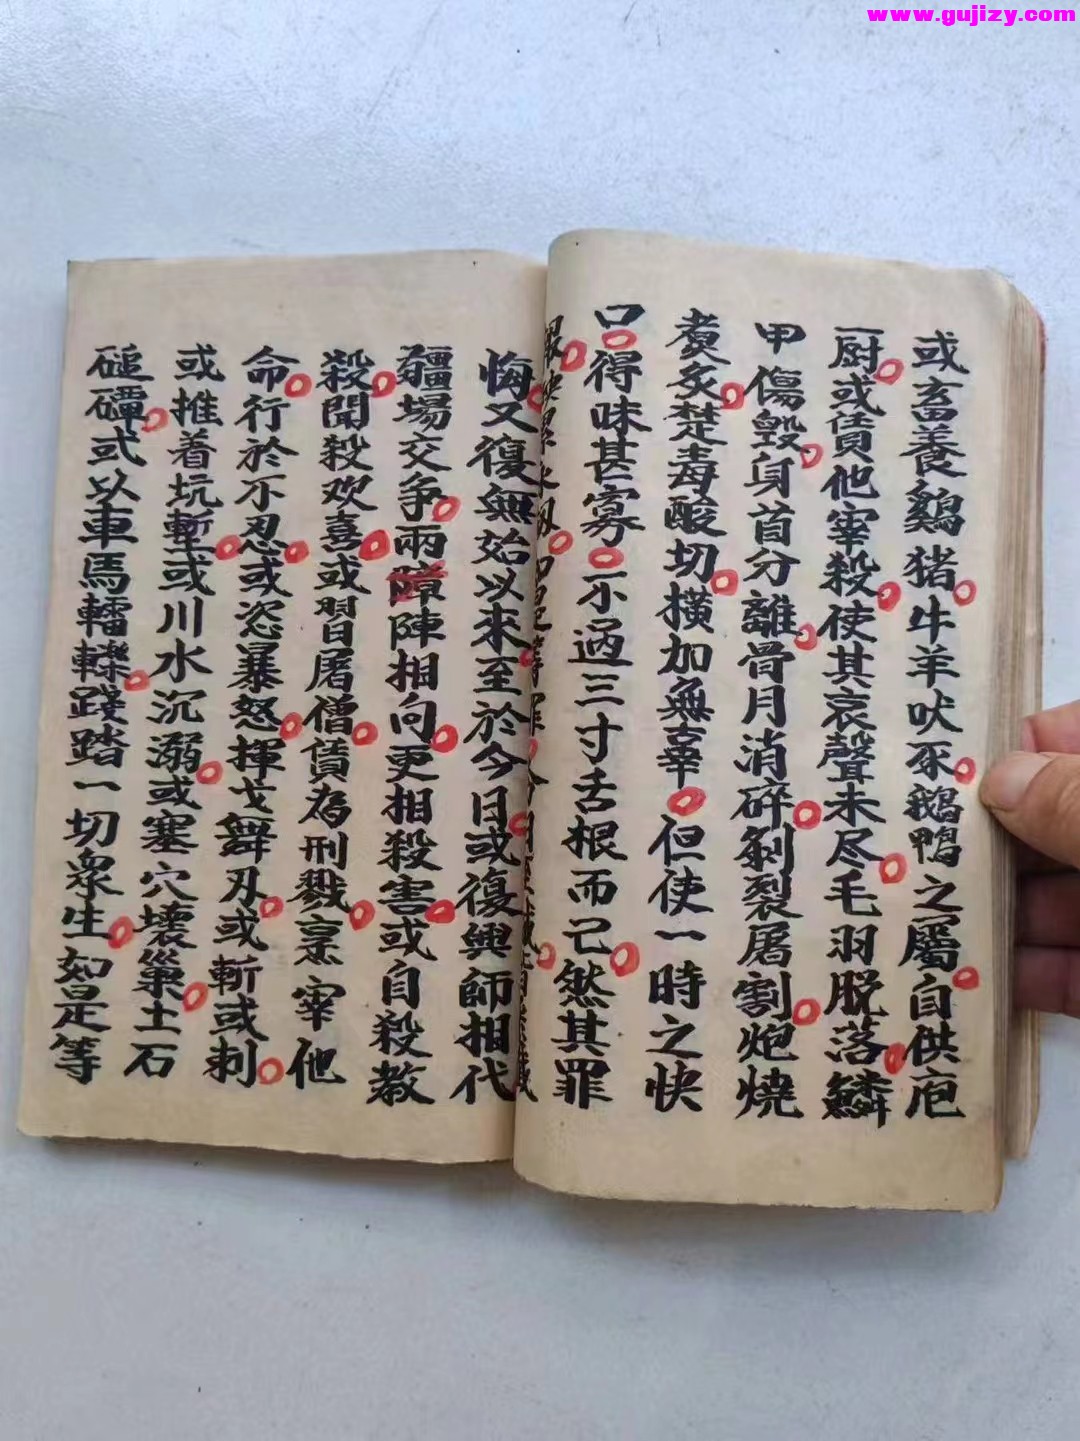 www.gujizy.com
或畜養鷄猪牛羊吠豕鵝鴨之屬自供庖
厨或賃他宰殺使其哀聲未尽毛羽脫落鱗
甲傷毀身首分離骨月消碎剝裂屠割炮燒
煑炙楚毒酸切橫加無辜但使一時之快
口得味甚寡不過三寸舌根而己然其罪
悔又復無始以來至於今日或復興師相代
疆場交爭兩障陣相向更相殺害或自殺教
殺聞殺欢喜或習屠僧賃為刑戮烹宰他
命行於不忍或恣暴怒揮戈舞刃或斬或刺
或推着坑塹或川水沉溺或塞穴壞巢土石
磓磹或以車馬轠轢踐踏一切衆生如是等